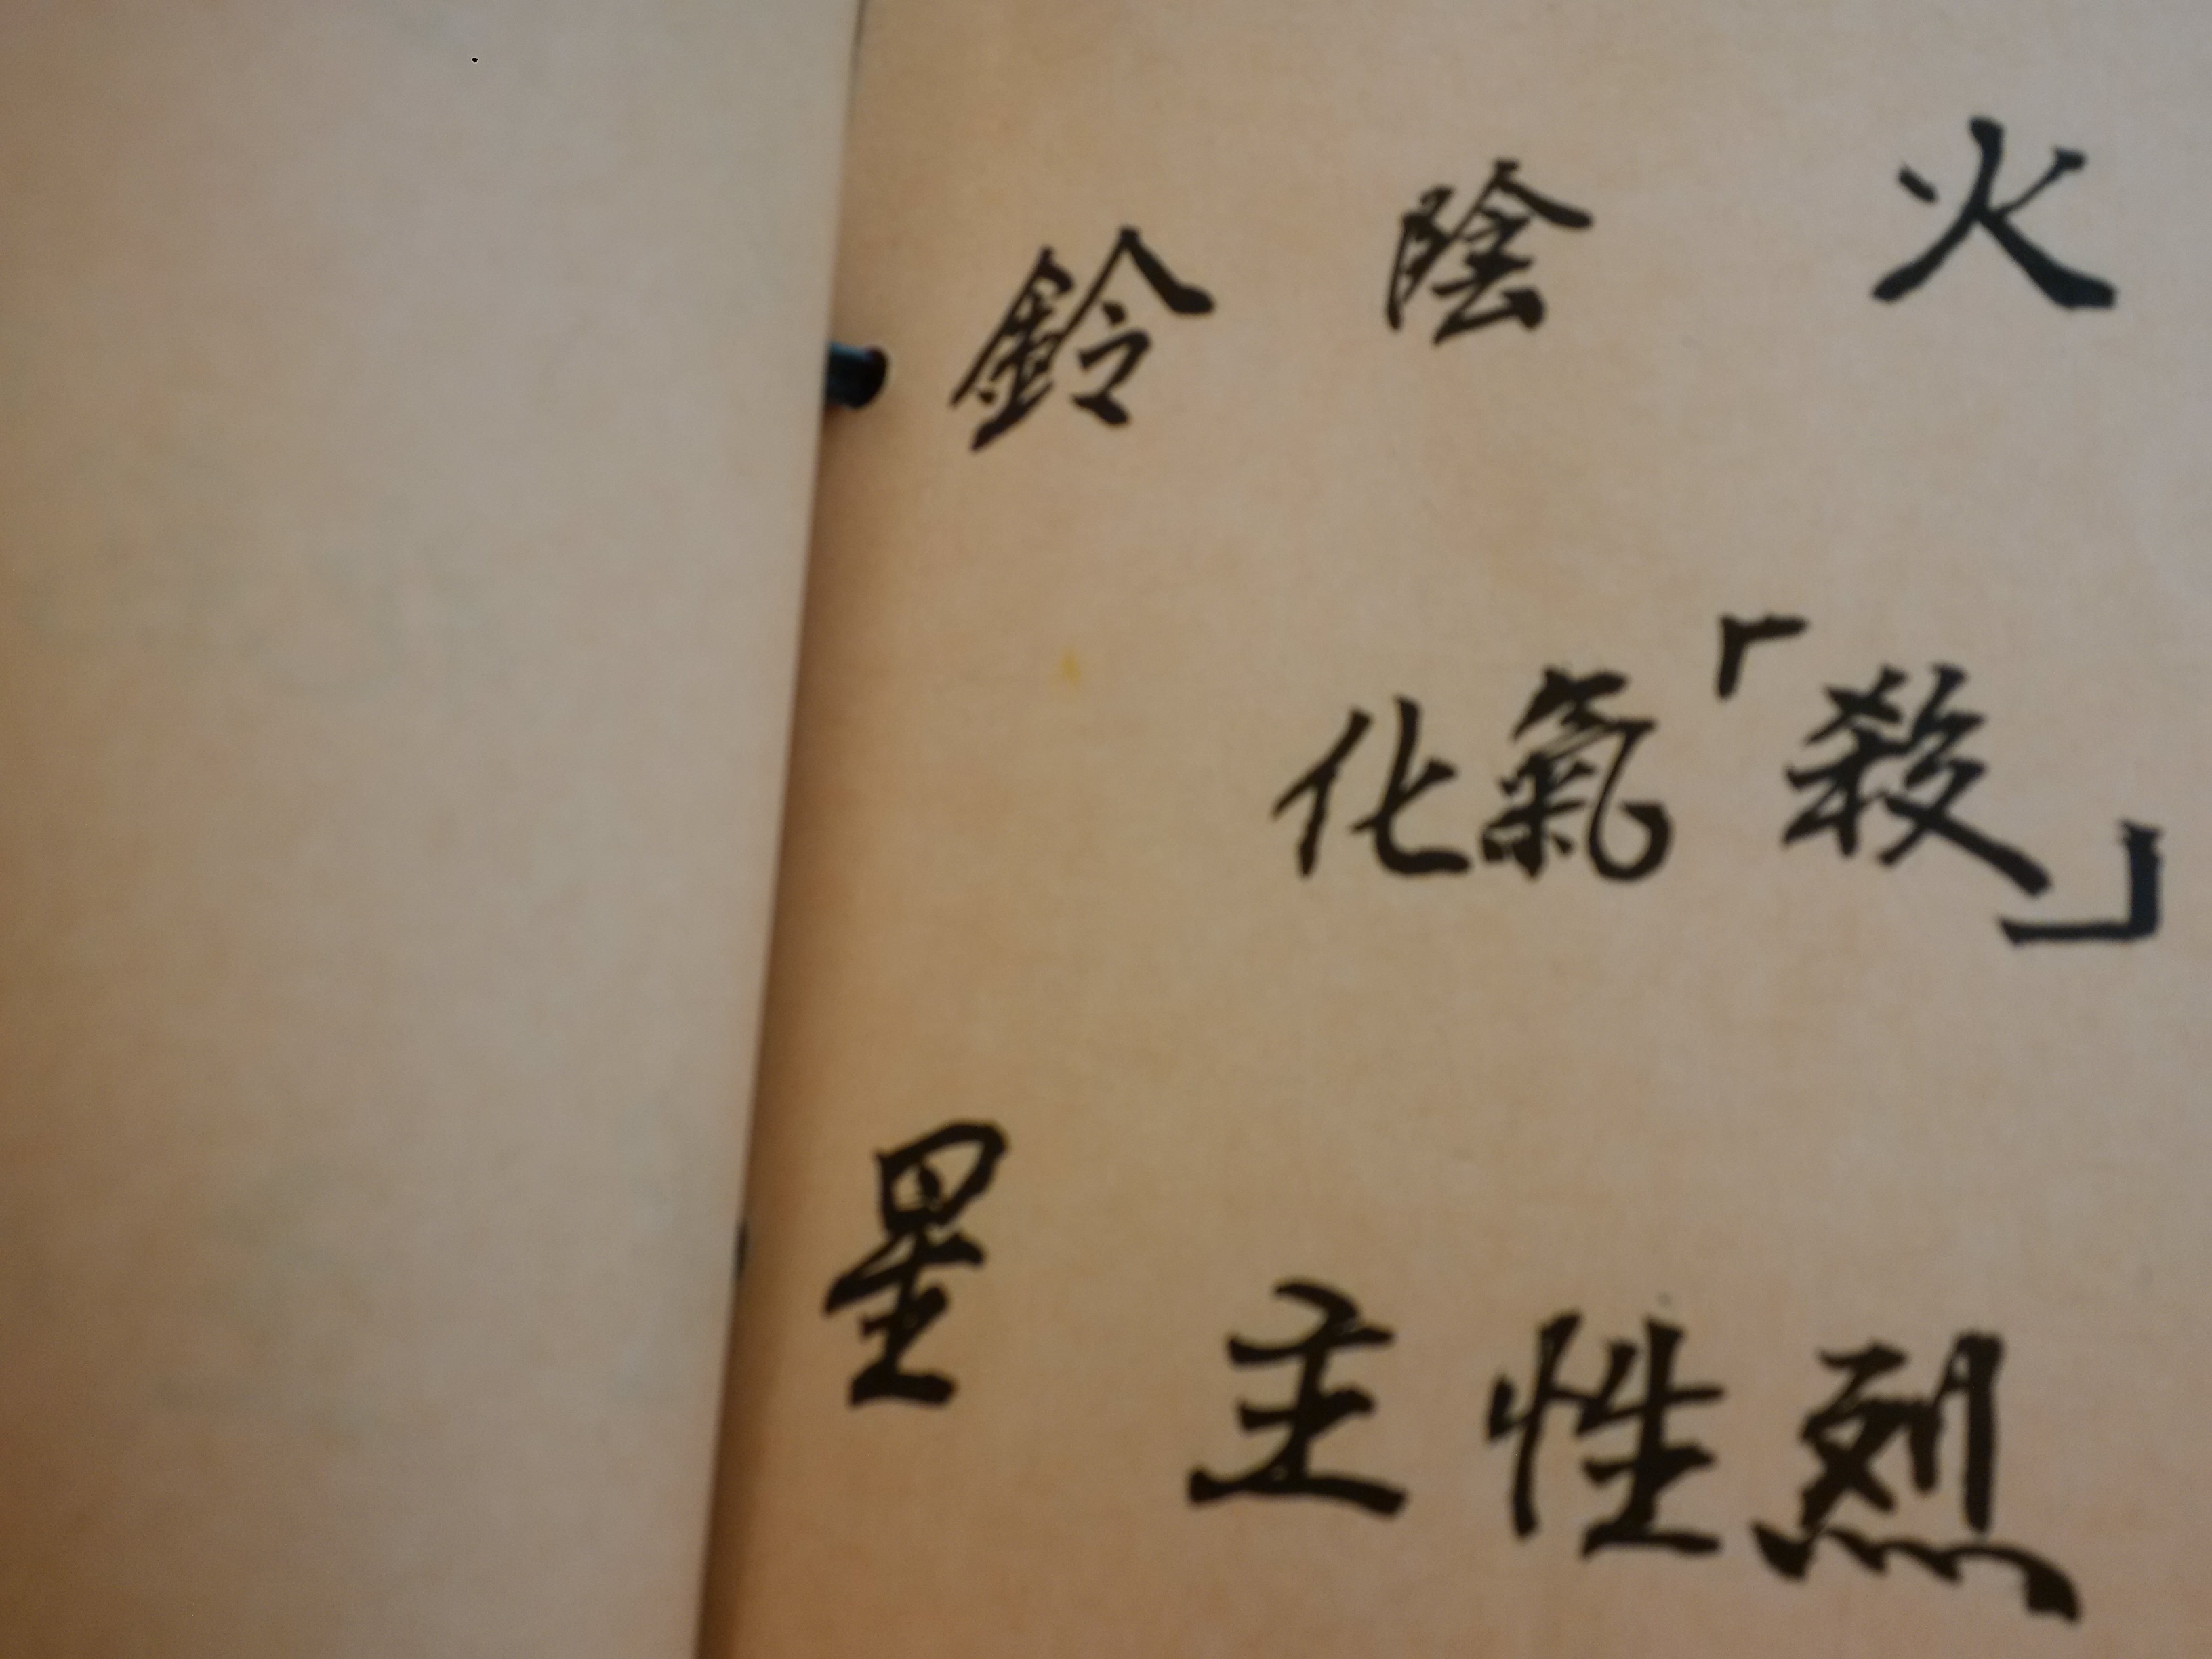 鈴星
陰火
化氣「殺」
主性烈